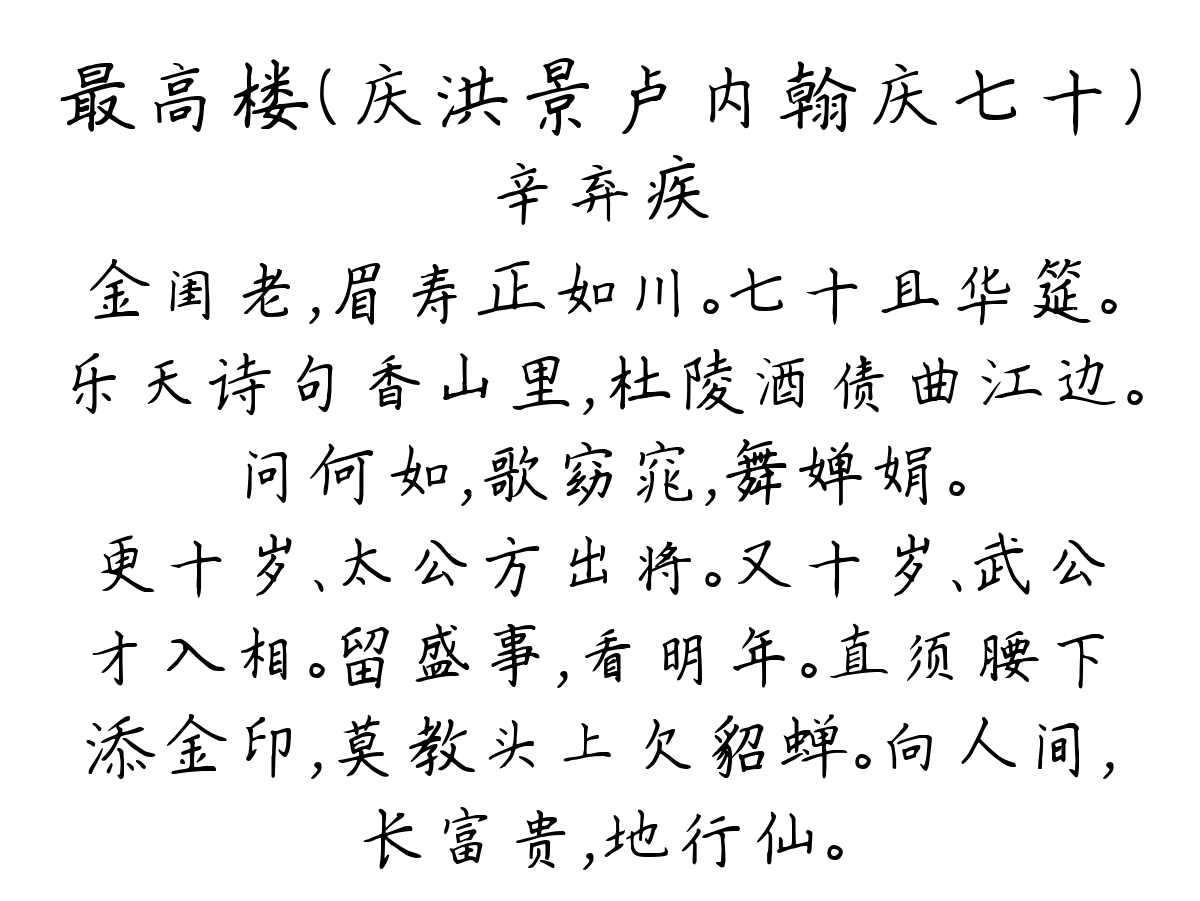 最高楼(庆洪景卢内翰庆七十)
辛弃疾
金闺老,眉寿正如川。七十且华筵。
乐天诗句香山里,杜陵酒债曲江边。
问何如,歌窈窕,舞婵娟。
更十岁、太公方出将。又十岁、武公
才入相。留盛事,看明年。直须腰下
添金印,莫教头上欠貂蝉。向人间,
长富贵,地行仙。